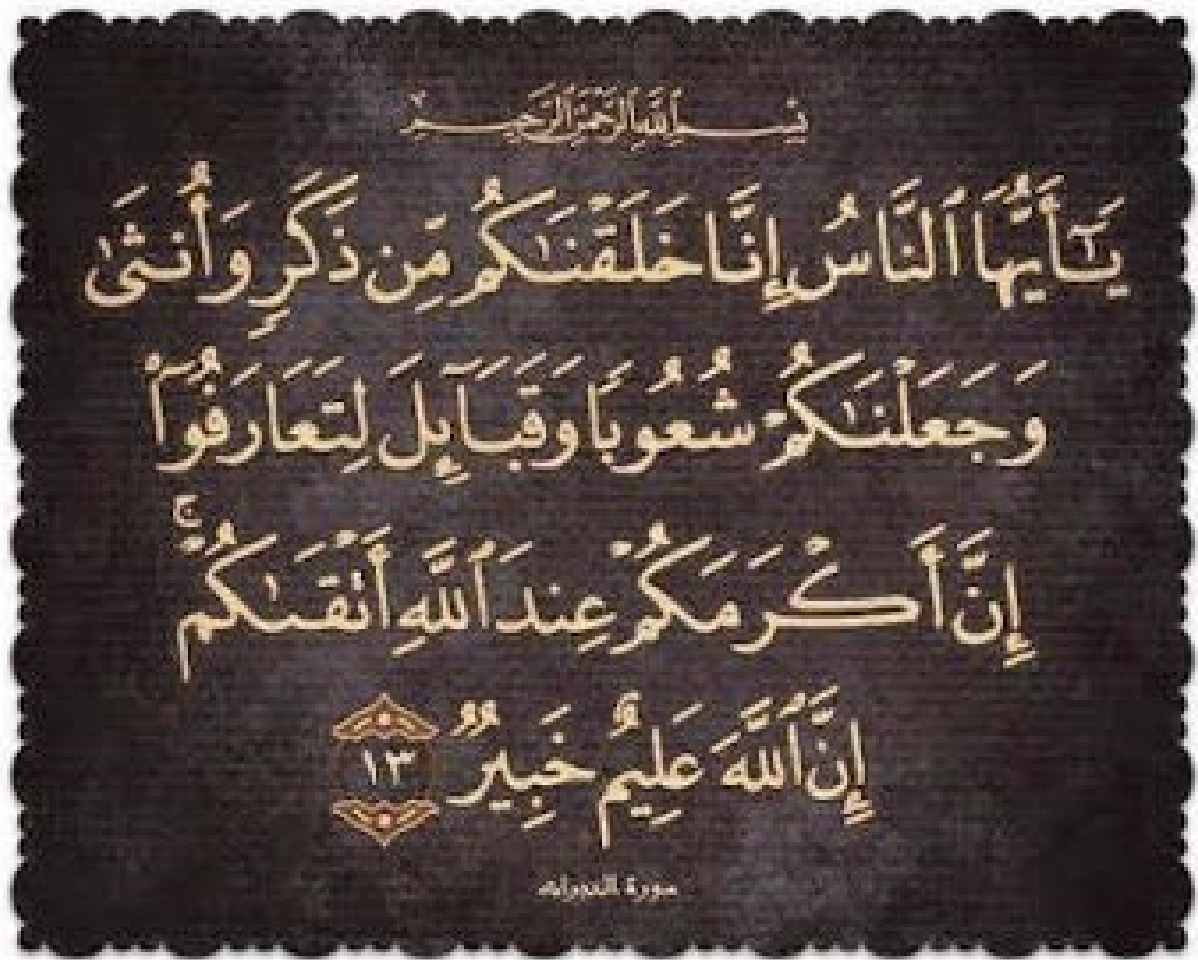 بِسْمِ ٱللَّهِ ٱلرَّحْمَٰنِ ٱلرَّحِيمِ
يَٰٓأَيُّهَا ٱلنَّاسُ إِنَّا خَلَقْنَٰكُم مِّن ذَكَرٍ وَأُنثَىٰ
وَجَعَلْنَٰكُمْ شُعُوبًا وَقَبَآئِلَ لِتَعَارَفُوٓا۟
إِنَّ أَكْرَمَكُمْ عِندَ ٱللَّهِ أَتْقَىٰكُمْ ۚ
إِنَّ ٱللَّهَ عَلِيمٌ خَبِيرٌ ١٣
سورة الحجرات